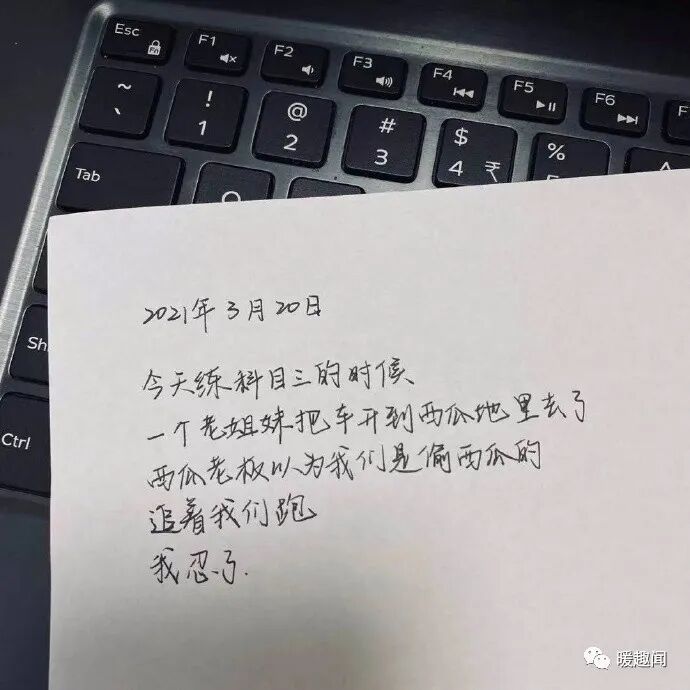 Esc Fn F1 F2 F3 F4 F5 F6 F
~ ` ! 1 @ 2 # 3 $ 4 ₹ %
Tab
Sh
Ctrl
2021年3月20日
今天练科目三的时候
一个老姐妹把车开到西瓜地里去了
西瓜老板以为我们是偷西瓜的
追着我们跑
我忍了.
暖趣闻